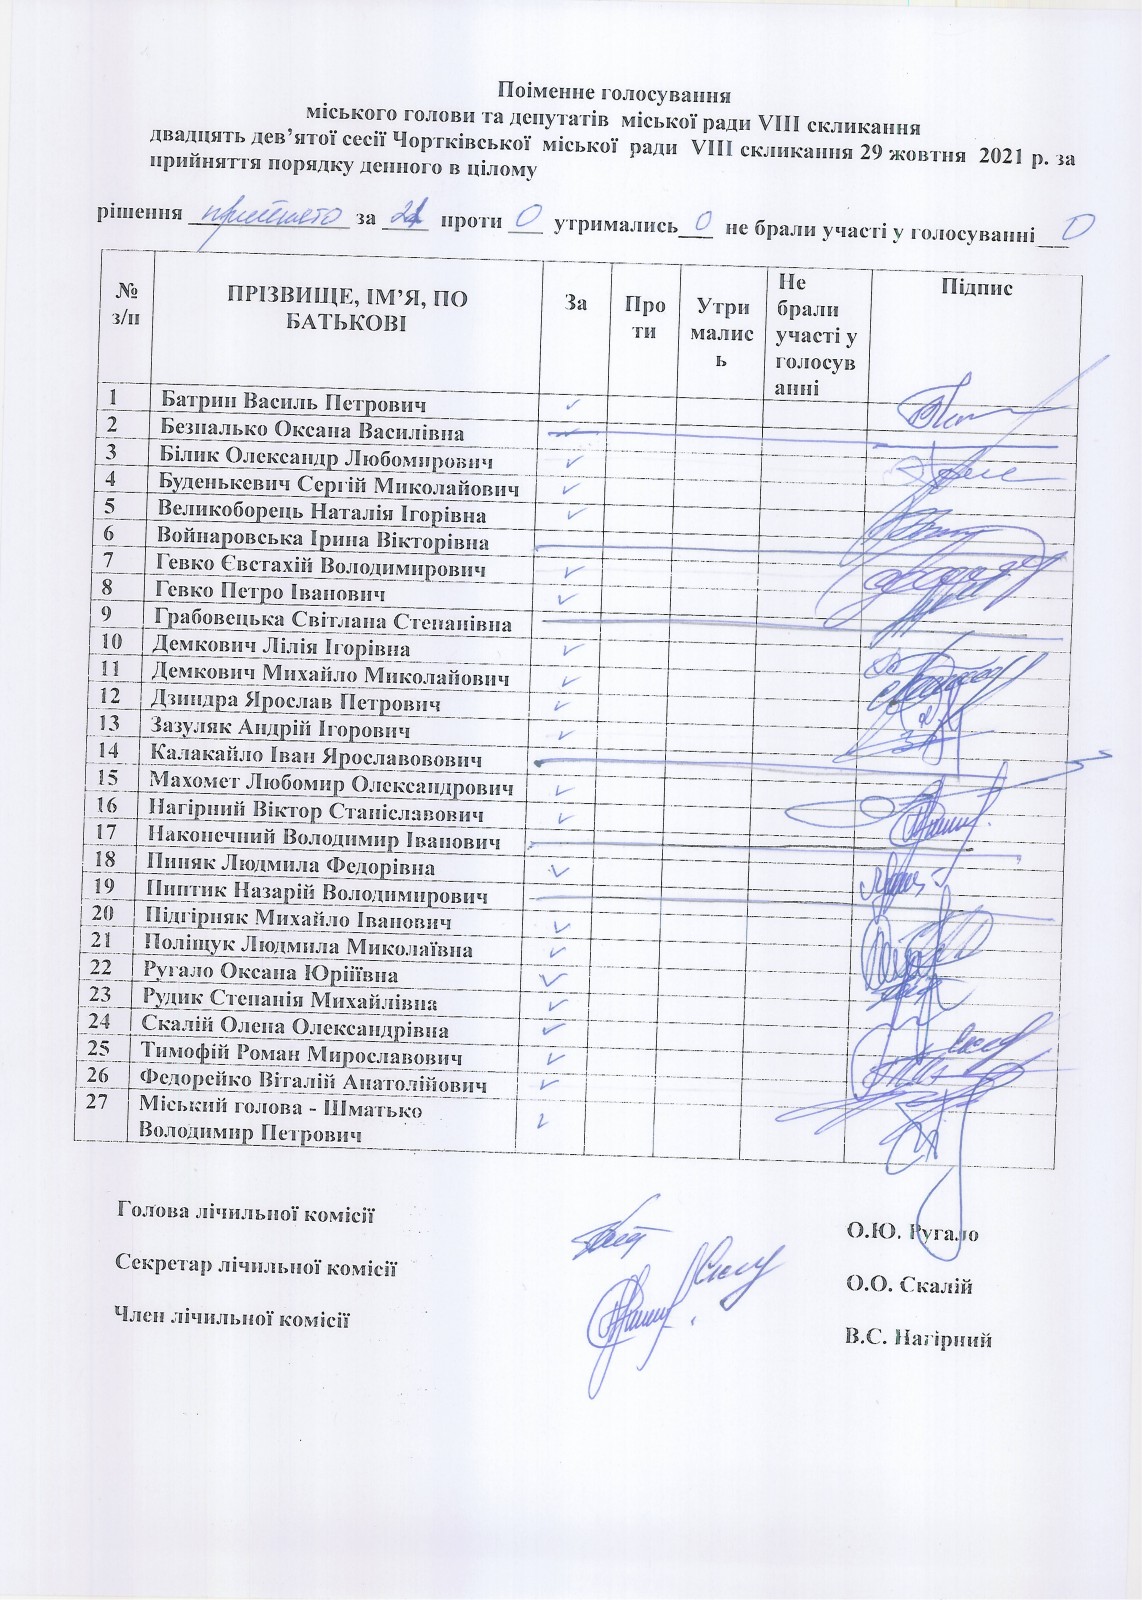 Поіменне голосування
міського голови та депутатів міської ради VIII скликання
двадцять дев’ятої сесії Чортківської міської ради VIII скликання 29 жовтня 2021 р. за
прийняття порядку денного в цілому
рішення прийнято за 21 проти 0 утримались 0 не брали участі у голосуванні 0
№ з/п ПРІЗВИЩЕ, ІМ’Я, ПО БАТЬКОВІ За Про ти Утри малис ь Не брали участі у голосув анні Підпис
1 Батрин Василь Петрович ✓
2 Безпалько Оксана Василівна
3 Білик Олександр Любомирович ✓
4 Буденькевич Сергій Миколайович ✓
5 Великоборець Наталія Ігорівна ✓
6 Войнаровська Ірина Вікторівна
7 Гевко Євстахій Володимирович ✓
8 Гевко Петро Іванович ✓
9 Грабовецька Світлана Степанівна
10 Демкович Лілія Ігорівна ✓
11 Демкович Михайло Миколайович ✓
12 Дзиндра Ярослав Петрович ✓
13 Зазуляк Андрій Ігорович ✓
14 Калакайло Іван Ярославовович
15 Махомет Любомир Олександрович ✓
16 Нагірний Віктор Станіславович ✓
17 Наконечний Володимир Іванович
18 Пиняк Людмила Федорівна ✓
19 Пиптик Назарій Володимирович
20 Підгірняк Михайло Іванович ✓
21 Поліщук Людмила Миколаївна ✓
22 Ругало Оксана Юріїівна ✓
23 Рудик Степанія Михайлівна ✓
24 Скалій Олена Олександрівна ✓
25 Тимофій Роман Мирославович ✓
26 Федорейко Віталій Анатолійович ✓
27 Міський голова - Шматько ✓
Володимир Петрович
Голова лічильної комісії О.Ю. Ругало
Секретар лічильної комісії О.О. Скалій
Член лічильної комісії В.С. Нагірний